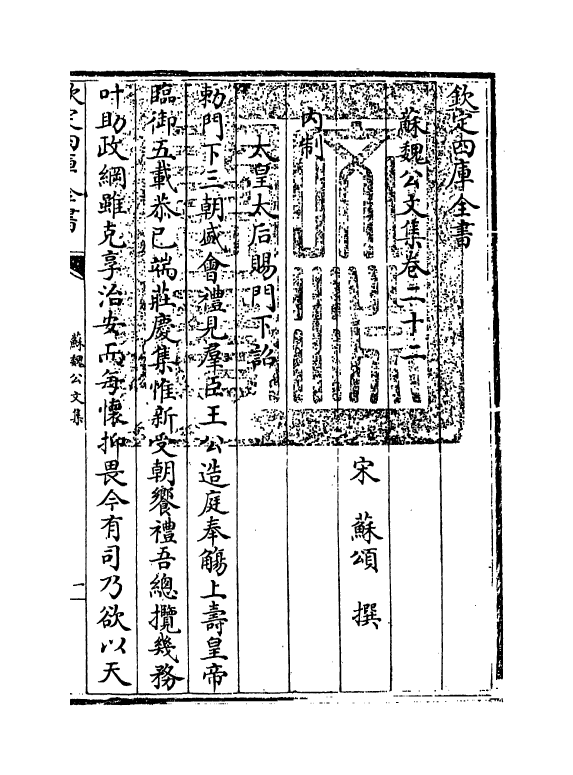 欽定四庫全書
蘇魏公文集卷二十二
宋 蘇頌 撰
内制
太皇太后賜門下詔
勅門下三朝盛會禮見羣臣王公造庭奉觴上壽皇帝
臨御五載恭已端莊慶集惟新受朝饗禮吾總攬幾務
叶助政綱雖克享治安而每懷抑畏今有司乃欲以天
欽定四庫全書
蘇魏公文集
一